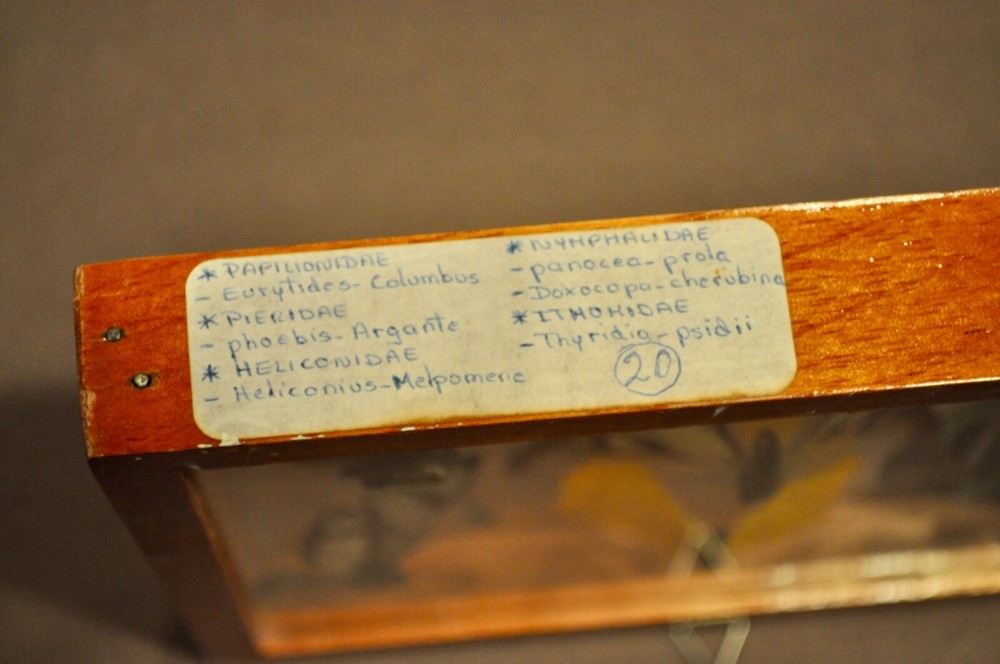 * PAPILIONIDAE
- Eurytides- Columbus
* PIERIDAE
- phoebis- Argante
* HELICONIDAE
- Heliconius-Melpomene
* NYMPHALIDAE
- panacea- prola
- Doxocopa-cherubina
* ITHOMIDAE
- Thyridia- psidii
20